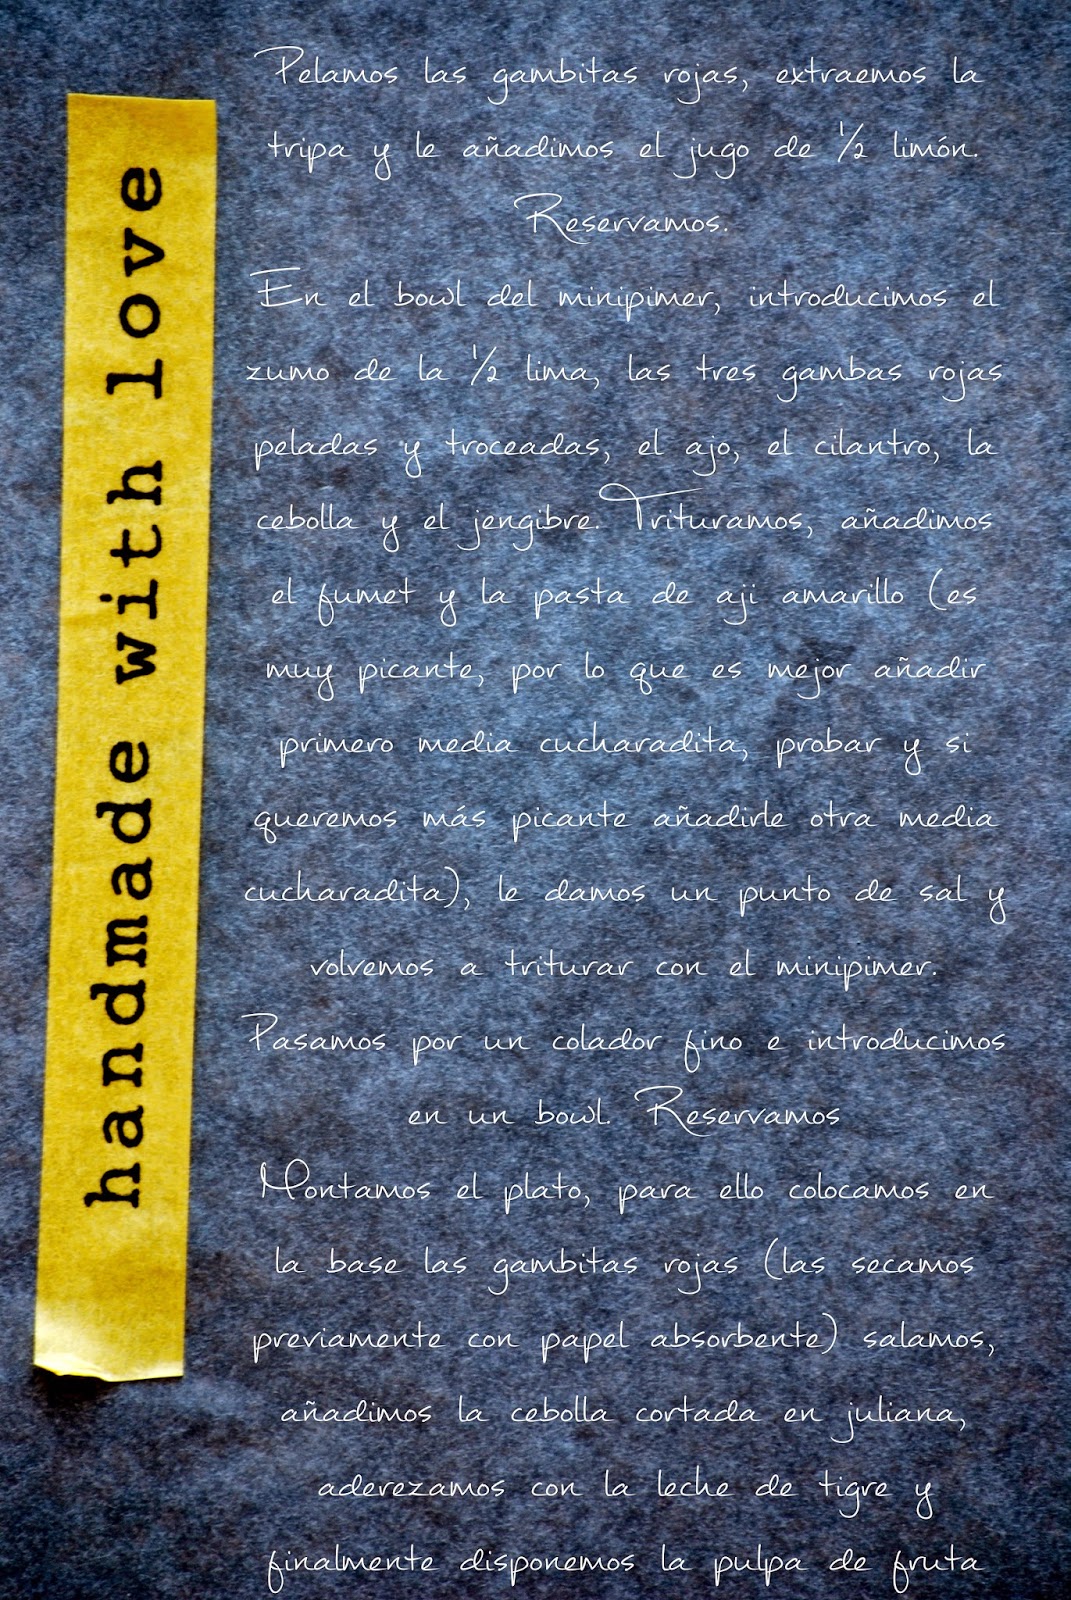 handmade with love
Pelamos las gambitas rojas, extraemos la
tripa y le añadimos el jugo de ½ limón.
Reservamos.
En el bowl del minipimer, introducimos el
zumo de la ½ lima, las tres gambas rojas
peladas y troceadas, el ajo, el cilantro, la
cebolla y el jengibre. Trituramos, añadimos
el fumet y la pasta de aji amarillo (es
muy picante, por lo que es mejor añadir
primero media cucharadita, probar y si
queremos más picante añadirle otra media
cucharadita), le damos un punto de sal y
volvemos a triturar con el minipimer.
Pasamos por un colador fino e introducimos
en un bowl. Reservamos
Montamos el plato, para ello colocamos en
la base las gambitas rojas (las secamos
previamente con papel absorbente) salamos,
añadimos la cebolla cortada en juliana,
aderezamos con la leche de tigre y
finalmente disponemos la pulpa de fruta